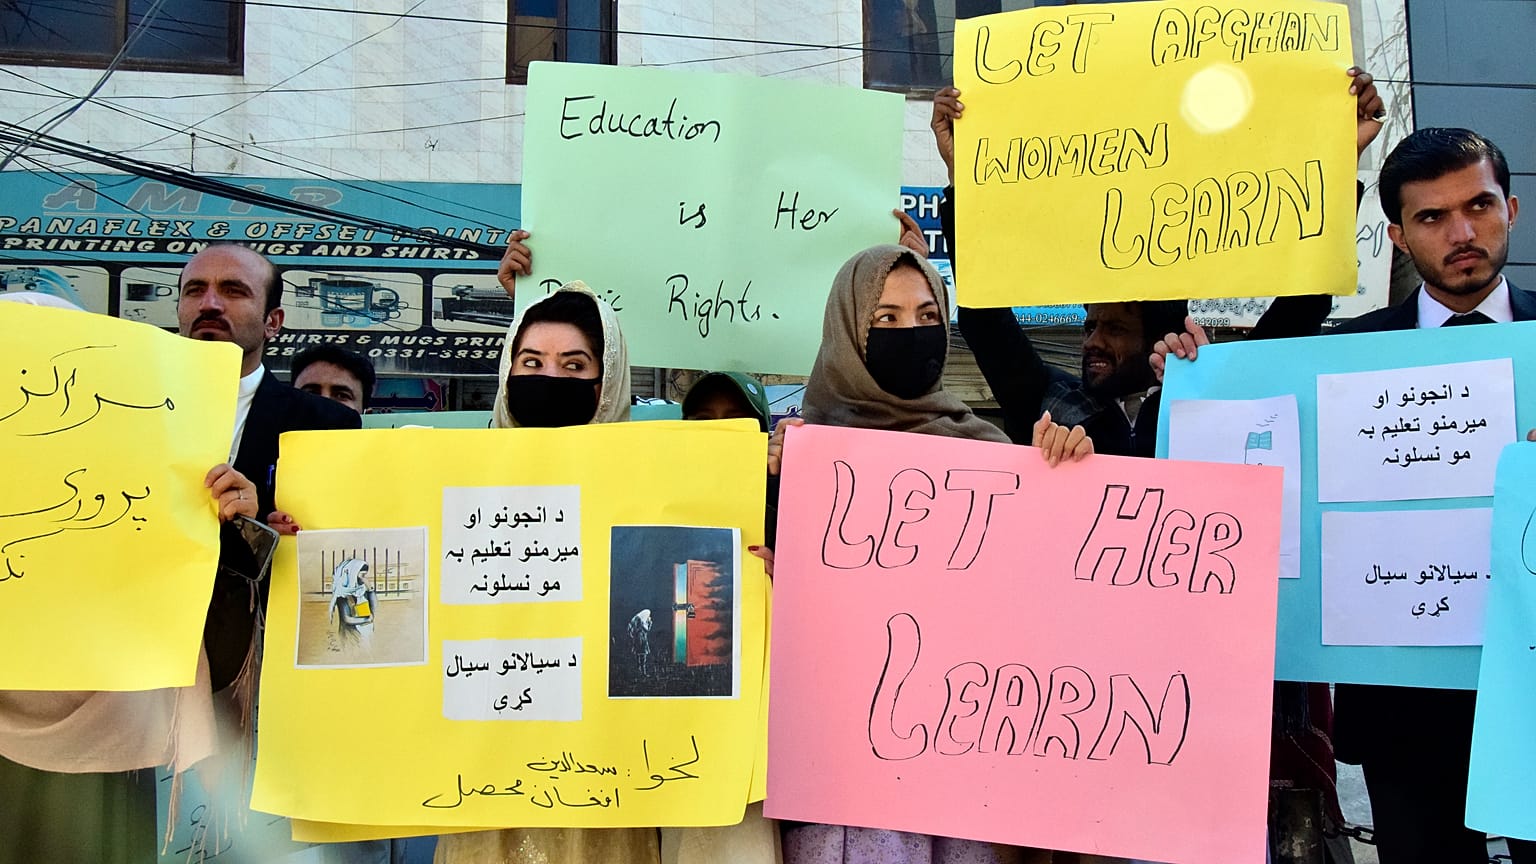 LET AFGHAN
WOMEN
LEARN
Education
is Her
Rights.
AMIR
PANAFLEX & OFFSET
PRINTING ON MUGS AND SHIRTS
SHIRTS & MUGS
مراکز
پروری
د انجونو او
میرمنو تعلیم به
مو نسلونه
د سیالانو سیال
کړې
لخوا: سعدالدین
افغان محصل
LET HER
LEARN
د انجونو او
میرمنو تعلیم به
مو نسلونه
سیالانو سیال
کړې